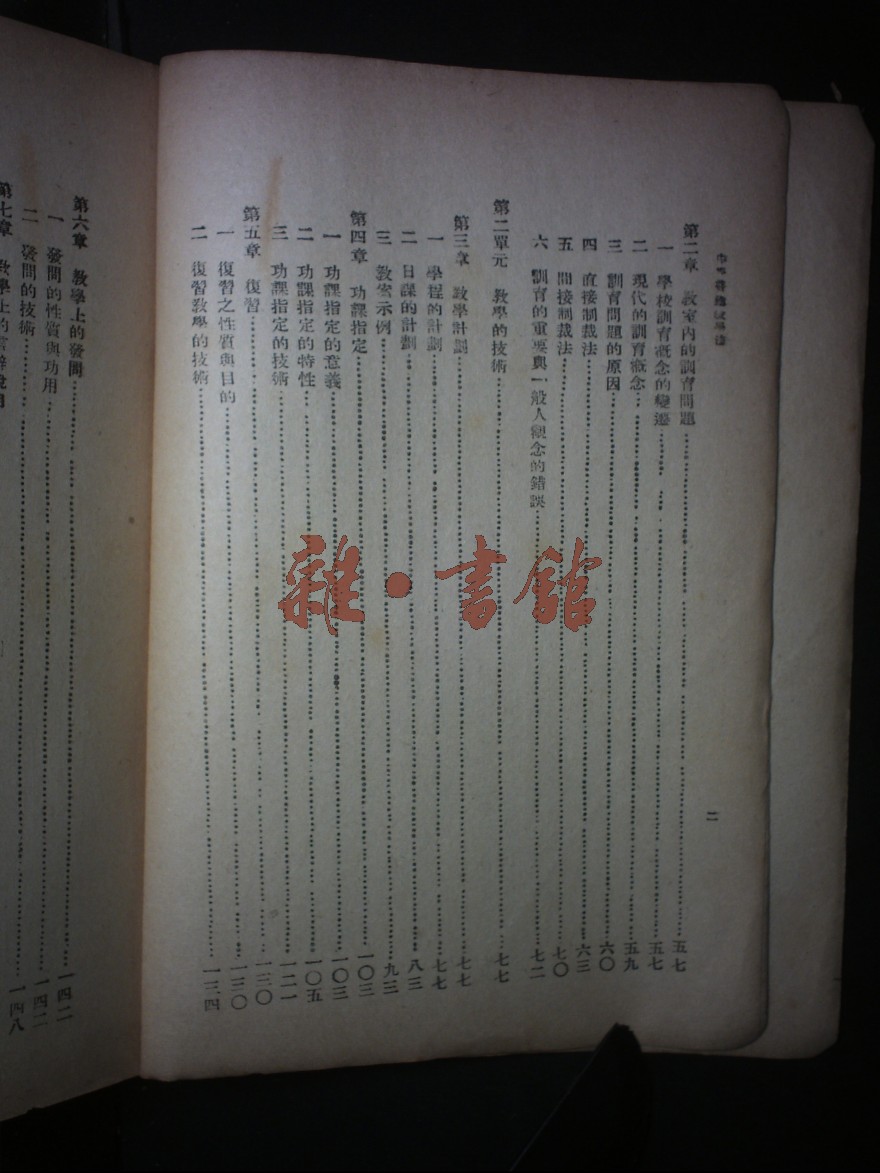 第二章　教室內的訓育問題……五七
一　學校訓育概念的變遷……五七
二　現代的訓育概念……五九
三　訓育問題的原因……六〇
四　直接制裁法……六三
五　間接制裁法……七〇
六　訓育的重要與一般人觀念的錯誤……七二
第二單元　教學的技術……七七
第三章　教學計劃……七七
一　學程的計劃……七七
二　日課的計劃……八三
三　教案示例……九三
第四章　功課指定……一〇三
一　功課指定的意義……一〇三
二　功課指定的特性……一〇五
三　功課指定的技術……一二一
第五章　復習……一三〇
一　復習之性質與目的……一三〇
二　復習教學的技術……一三四
二
第六章　教學上的發問……一四二
一　發問的性質與功用……一四二
二　發問的技術……一四八
第七章　教學上的
雜·書館